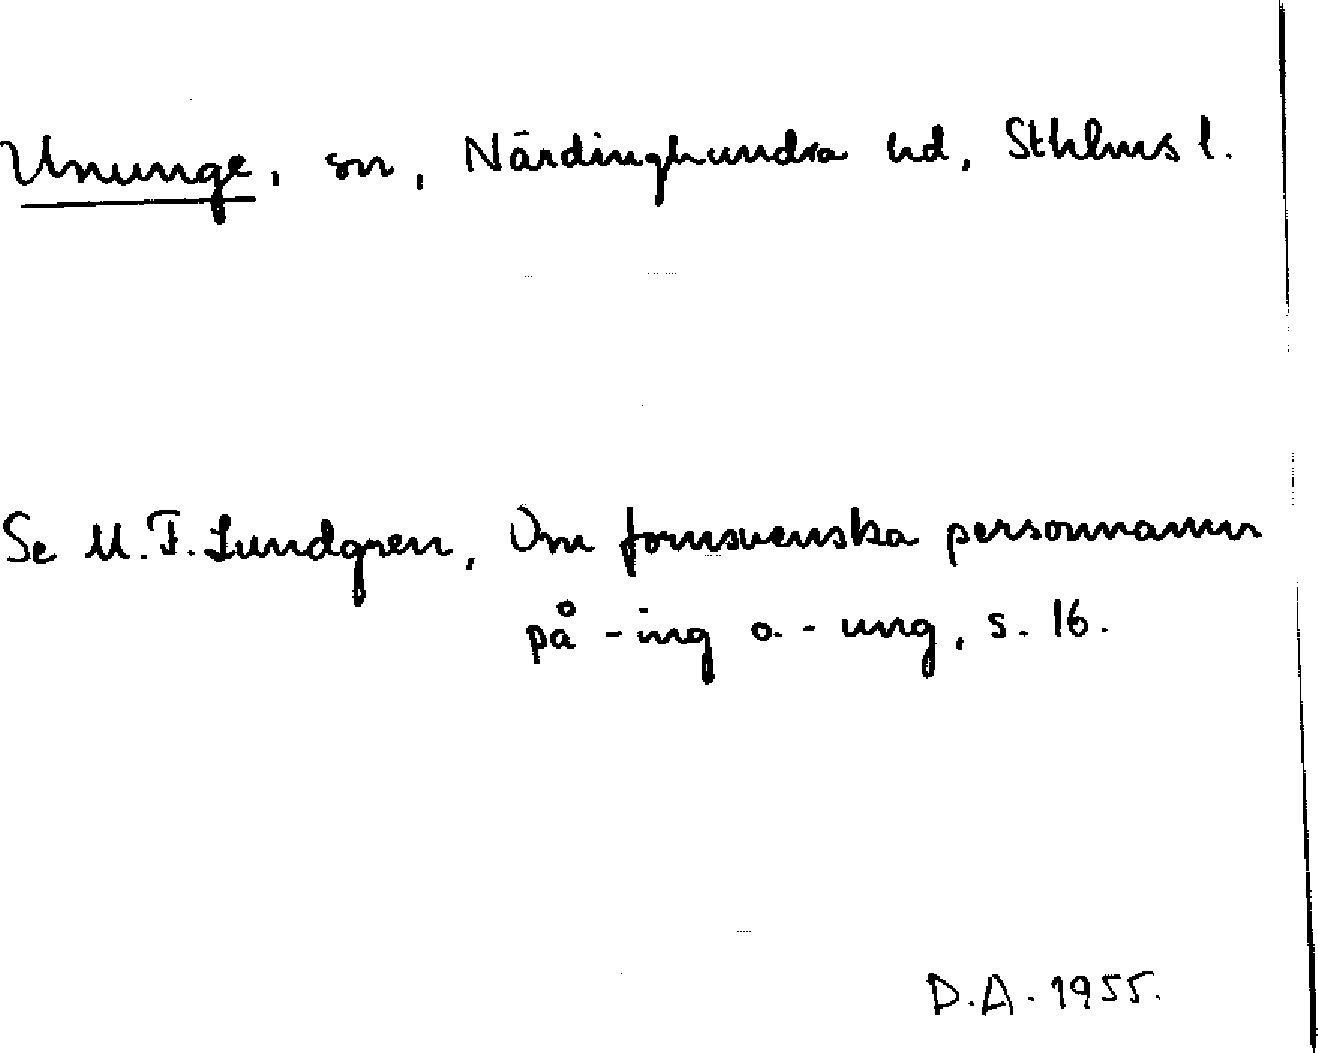 Ununge, sn, Närdinghundra hd, Sthlms l.
Se M. F. Lundgren, Om fornsvenska personnamn
på -ing o. -ung, s. 16.
D.A. 1955.